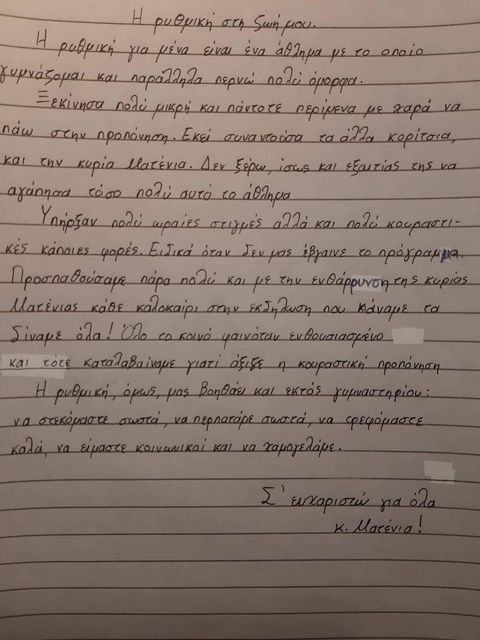 Η ρυθμική στη ζωή μου.
Η ρυθμική για μένα είναι ένα άθλημα με το οποίο
γυμνάζομαι και παράλληλα περνώ πολύ όμορφα.
Ξεκίνησα πολύ μικρή και πάντοτε περίμενα με χαρά να
πάω στην προπόνηση. Εκεί συναντούσα τα άλλα κορίτσια,
και την κυρία Ματένια. Δεν ξέρω, ίσως και εξαιτίας της να
αγάπησα τόσο πολύ αυτό το άθλημα
Υπήρξαν πολύ ωραίες στιγμές αλλά και πολύ κουραστι-
κές κάποιες φορές. Ειδικά όταν δεν μας έβγαινε το πρόγραμμα.
Προσπαθούσαμε πάρα πολύ και με την ενθάρρυνση της κυρίας
Ματένιας κάθε καλοκαίρι στην εκδήλωση που κάναμε τα
δίναμε όλα! Όλο το κοινό φαινόταν ενθουσιασμένο
και τότε καταλαβαίναμε γιατί άξιζε η κουραστική προπόνηση
Η ρυθμική, όμως, μας βοηθάει και εκτός γυμναστηρίου:
να στεκόμαστε σωστά, να περπατάμε σωστά, να τρεφόμαστε
καλά, να είμαστε κοινωνικοί και να χαμογελάμε.
Σ' ευχαριστώ για όλα
κ. Ματένια!